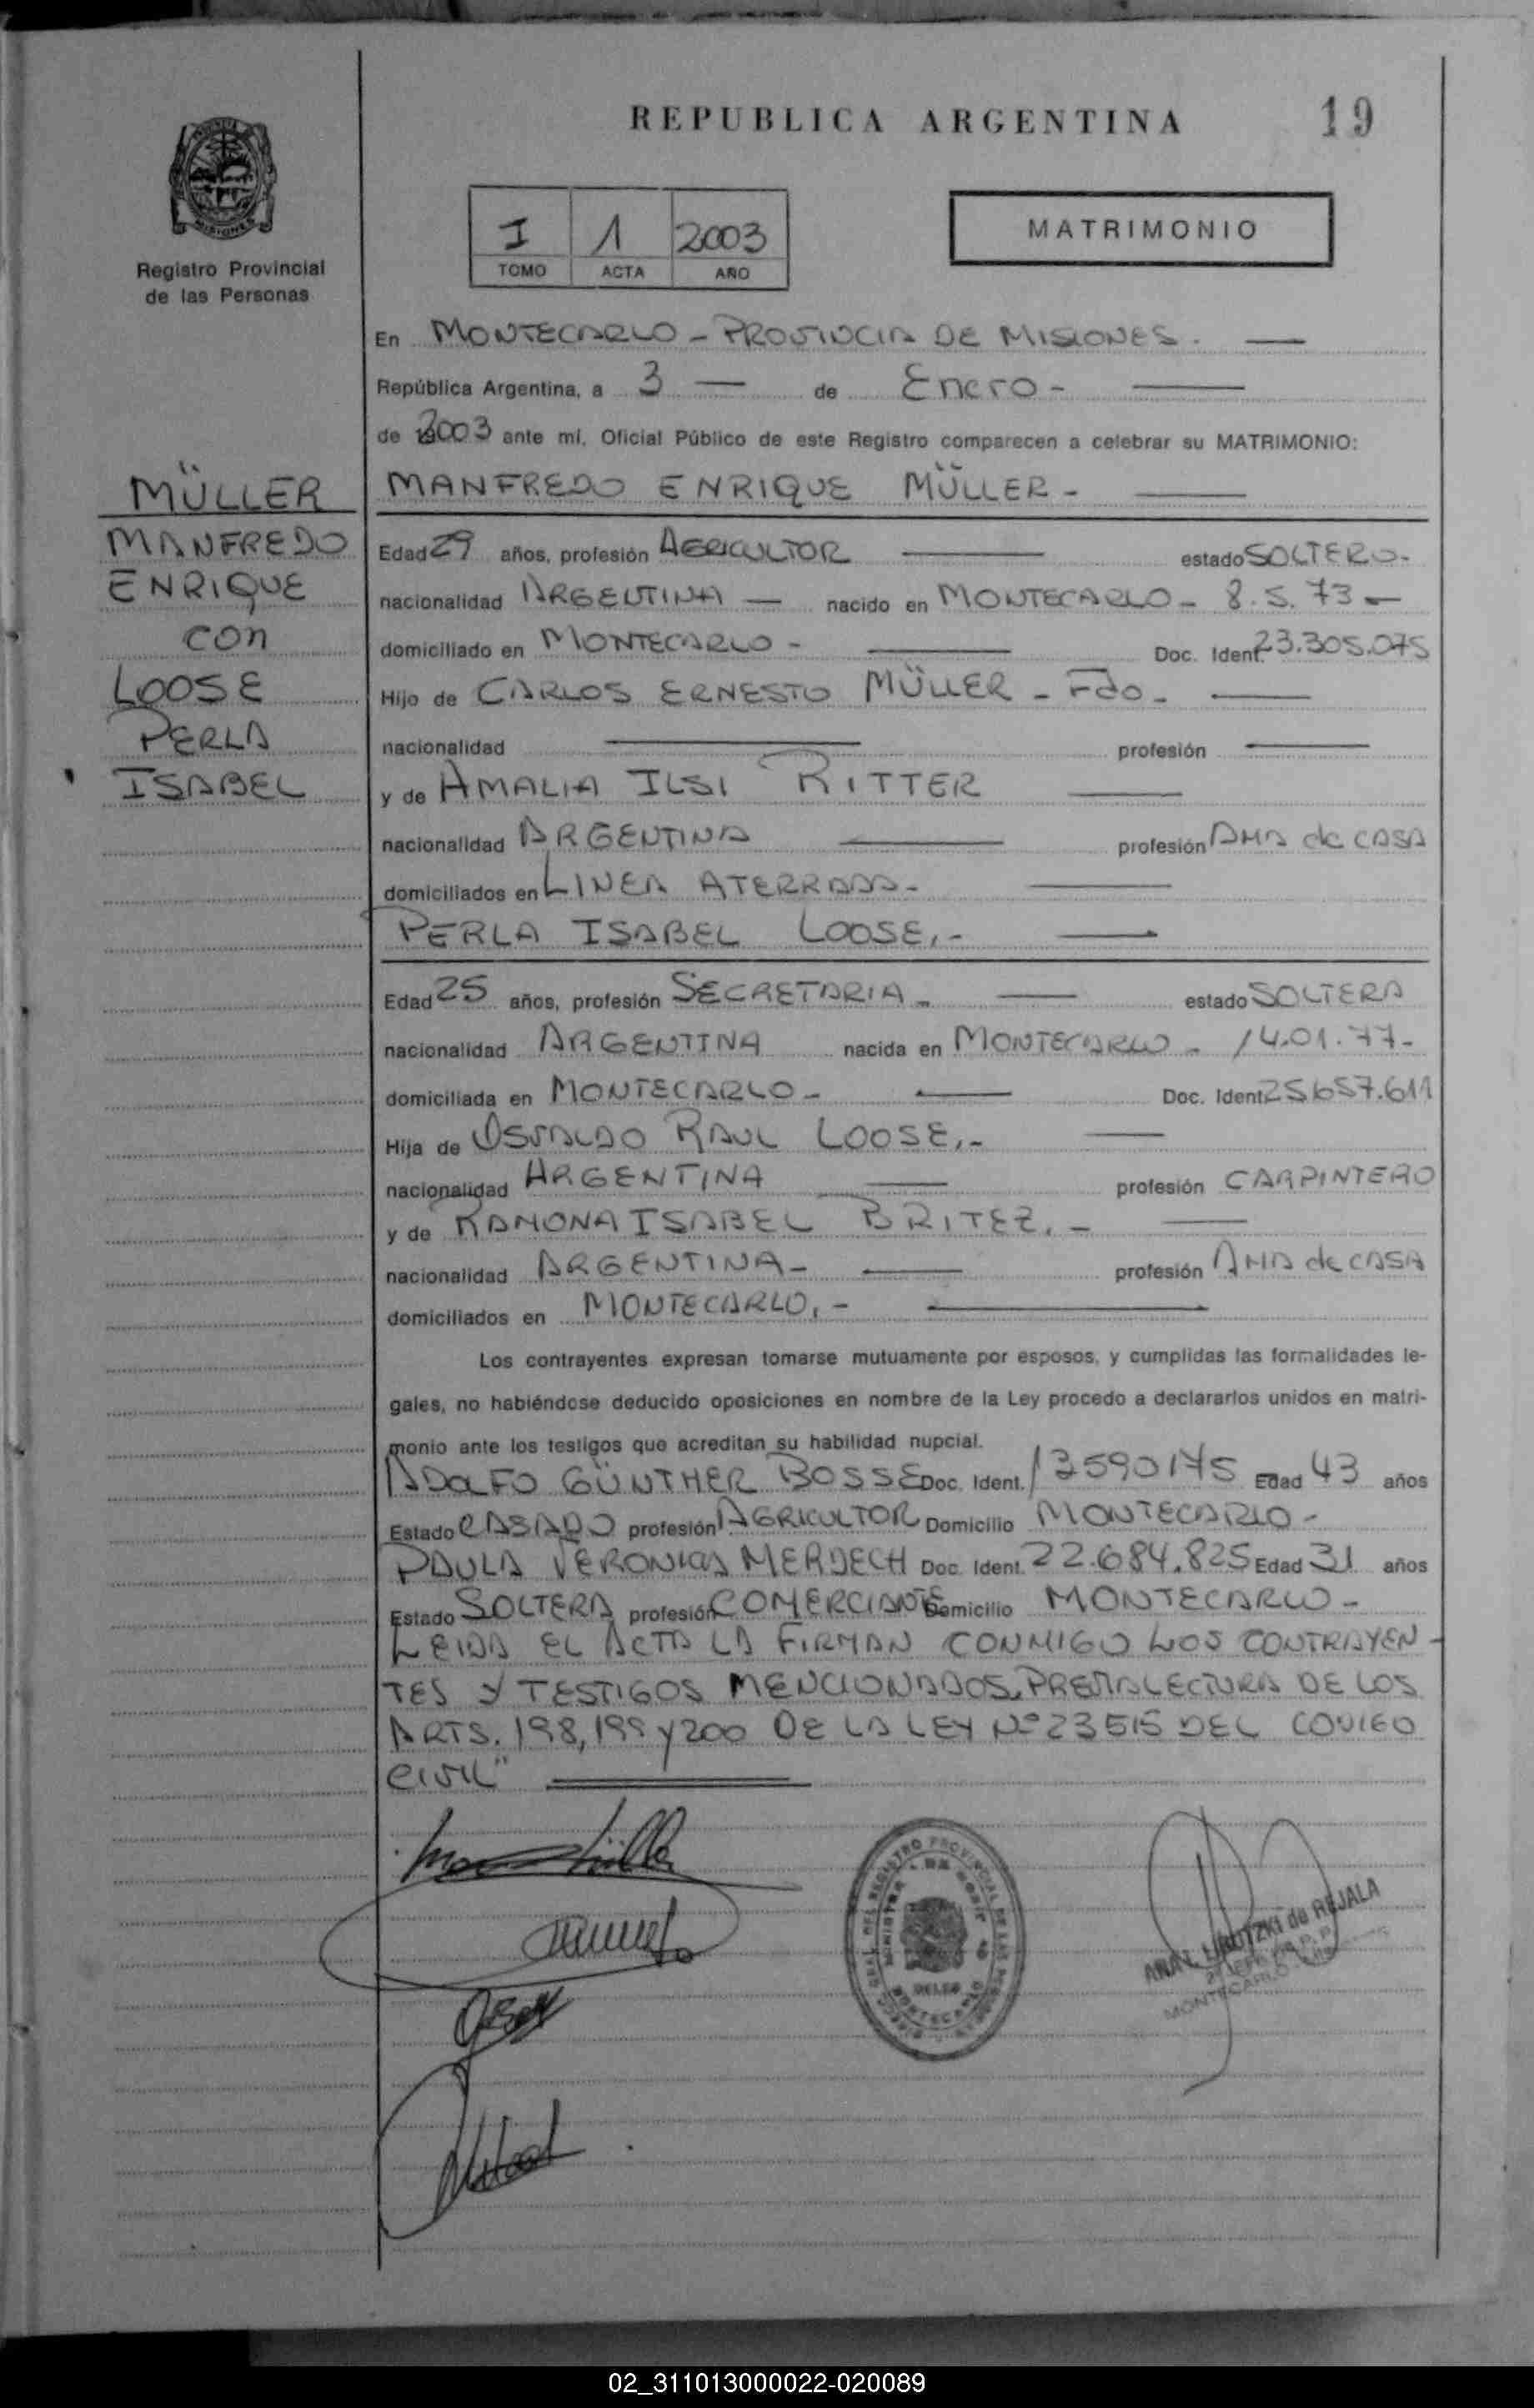 REPUBLICA ARGENTINA
19
MISIONES
Registro Provincial
de las Personas
I 1 2003
TOMO ACTA AÑO
MATRIMONIO
En MONTECARLO - PROVINCIA DE MISIONES. —
República Argentina, a 3 — de Enero - —
de 2003 ante mí, Oficial Público de este Registro comparecen a celebrar su MATRIMONIO:
MÜLLER
MANFREDO
ENRIQUE
con
LOOSE
PERLA
ISABEL
MANFREDO ENRIQUE MÜLLER - —
Edad 29 años, profesión AGRICULTOR — estado SOLTERO-
nacionalidad ARGENTINA — nacido en MONTECARLO - 8.5.73 —
domiciliado en MONTECARLO - — Doc. Ident. 23.305.075
Hijo de CARLOS ERNESTO MÜLLER - Fdo - —
nacionalidad — profesión —
y de AMALIA ILSI RITTER —
nacionalidad ARGENTINA — profesión AMA de CASA
domiciliados en LINEA ATERRADA- —
PERLA ISABEL LOOSE,- —
Edad 25 años, profesión SECRETARIA - — estado SOLTERA
nacionalidad ARGENTINA nacida en MONTECARLO - 14.01.77-
domiciliada en MONTECARLO - — Doc. Ident. 25.657.611
Hija de OSVALDO RAUL LOOSE,- —
nacionalidad ARGENTINA — profesión CARPINTERO
y de RAMONA ISABEL BRITEZ,- —
nacionalidad ARGENTINA - — profesión AMA de CASA
domiciliados en MONTECARLO,- —
Los contrayentes expresan tomarse mutuamente por esposos, y cumplidas las formalidades le-
gales, no habiéndose deducido oposiciones en nombre de la Ley procedo a declararlos unidos en matri-
monio ante los testigos que acreditan su habilidad nupcial.
ADOLFO GÜNTHER BOSSE Doc. Ident. 13590175 Edad 43 años
Estado CASADO profesión AGRICULTOR Domicilio MONTECARLO -
PAULA VERONICA MERDECH Doc. Ident. 22.684.825 Edad 31 años
Estado SOLTERA profesión COMERCIANTE Domicilio MONTECARLO -
LEIDA EL ACTA LA FIRMAN CONMIGO LOS CONTRAYEN-
TES Y TESTIGOS MENCIONADOS, PREVIA LECTURA DE LOS
ARTS. 198, 199 Y 200 DE LA LEY Nº 23515 DEL CODIGO
CIVIL" —
de REJALA
MONTECARLO
02_311013000022-020089